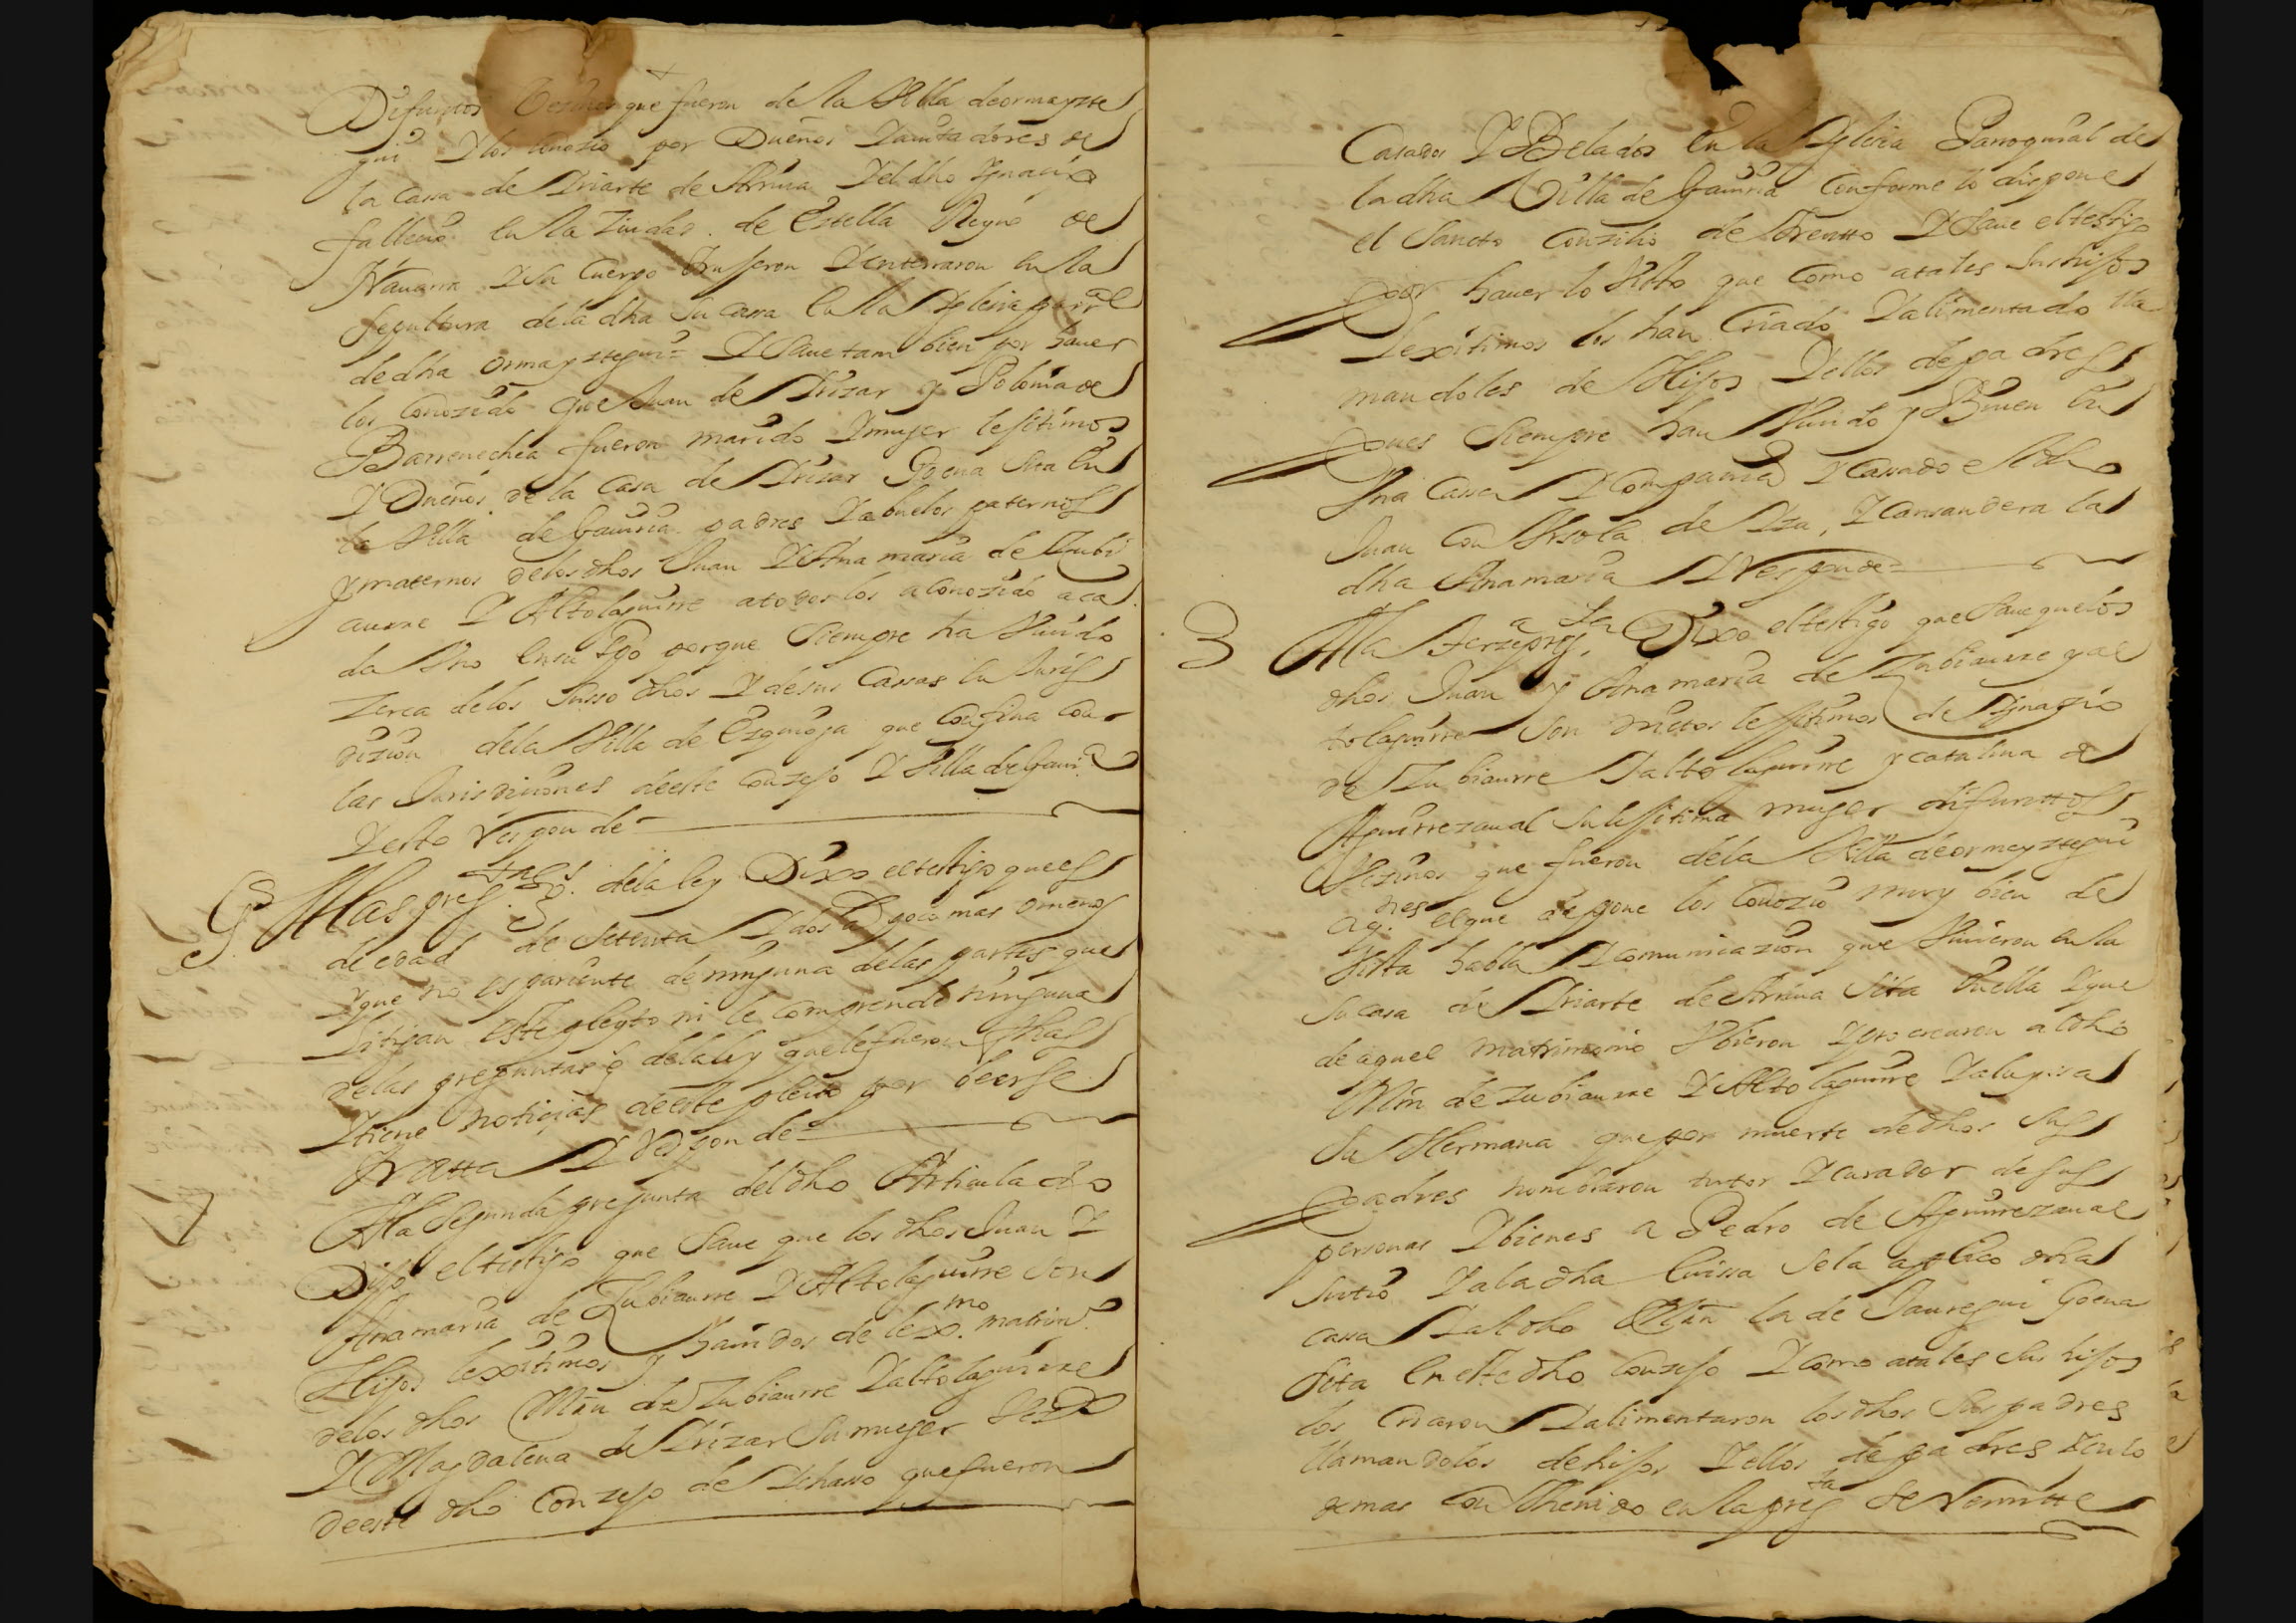 Difuntos Vezinos que fueron de la Villa deormayzte
gui Y los Conozio por Dueños Y auitadores de
la Cassa de Yriarte de Arriua Y el dho Ygnacio
fallecio en la Ziudad. de Estella Reyno de
Nauarra Y Su Cuerpo trujeron Y enterraron en la
Sepultura de la dha Su Cassa en la Yglesia parr.al
dedha ormayztegui= Y Saue tam bien por hauer
los Conozido que Juan de Yrizar y Polonia de
Barrenechea fueron marido Y muger lejitimos
Y Dueños de la Casa de Yrizar Goena Sita en
la Villa de Gauiria padres Y abuelos paternos
Y maternos delos dhos Juan Y Ana maria de Zubi
aurre Y Altolaguirre atodos los a Conozido aca
da Vno en su tpo porque Siempre ha Viuido
Zerca delos Suso dhos Y desus Cassas en Juris
dizion dela Villa de Ezquioga que Confina con
las Jurisdiciones deeste Conzejo Y Villa de Gaui.a
Y esto Responde=
G Alas preg.tas g.s dela ley Dixo eltestigo que es
de edad de Setenta Y dos a.s poco mas omenos
Yque no es pariente de ninguna delas partes que
litigan este pleyto ni le comprende ninguna
delas preguntas g.s dela ley quele fueron fhas
Y tiene noticias deeste pleito por leerse
Y Responde=
Ala Segunda pregunta del dho Articulado
Dijo eltestigo que Saue que los dhos Juan Y
Ana maria de Zubiaurre Y Altolaguirre Son
Hijos lexitimos y hauidos de lex.mo matrim.o
delos dhos Mrn de Zubiaurre Y altolaguirre
Y Magdalena de Yrizar Su muger Vez.os
deeste dho Conzejo de Ychasso que fueron
Casados Y Belados en la Yglesia Parroquial de
la dha Villa de Gauiria Conforme lo dispone
el Sancto Conzilio de Trentto Y Saue eltestigo
por hauer lo Visto que Como atales Sus hijos
Lexitimos los han Criado Y alimentado lla
mandoles de Hijos Y ellos de padres
pues Siempre han Viuido y Biuen en
Vna Cassa Y Compania Y Cassado el dho
Juan Con Vrsola de Yza, Y Cassandera la
dha Ana maria Y Responde=
3 Ala terz.a preg.ta Dixo eltestigo que Saue quelos
dhos Juan y Ana maria de Zubiaurre y al
tolaguirre Son nietos lejitimos de Ygnazio
de Zubiaurre Y altolaguirre y catalina de
Aguirrezaual Su lejitima muger difuntos
Vezinos que fueron dela Villa deormayztegui
a q.nes el que depone los Conozio muy bien de
Vista habla Y comunicazion que Viuieron en la
Su casa de Yriarte de Arriua Sita en ella Y que
de aquel matrimonio Vbieron Y procrearon al dho
Mrn de Zubiaurre Y Altolaguirre Y a luissa
Su Hermana que por muerte de dhos Sus
Padres nombraron tutor Y curador de sus
personas Y bienes a Pedro de Aguirrezaual
Su tio Y ala dha luissa Se la aplico dha
cassa Y al dho Mrn la de Jauregui Goena
Sita en este dho Conzejo Y como atales Sus hijos
los Criaron Y alimentaron los dhos Sus padres
llamandolos de hijos Y ellos de padres Y en lo
demas Conthenido en la preg.ta Se Remitte